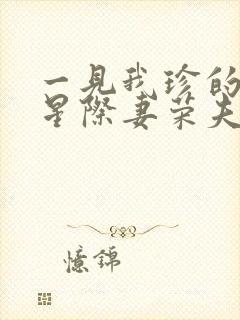 一見我珍的
星際妻荣夫
憶錦